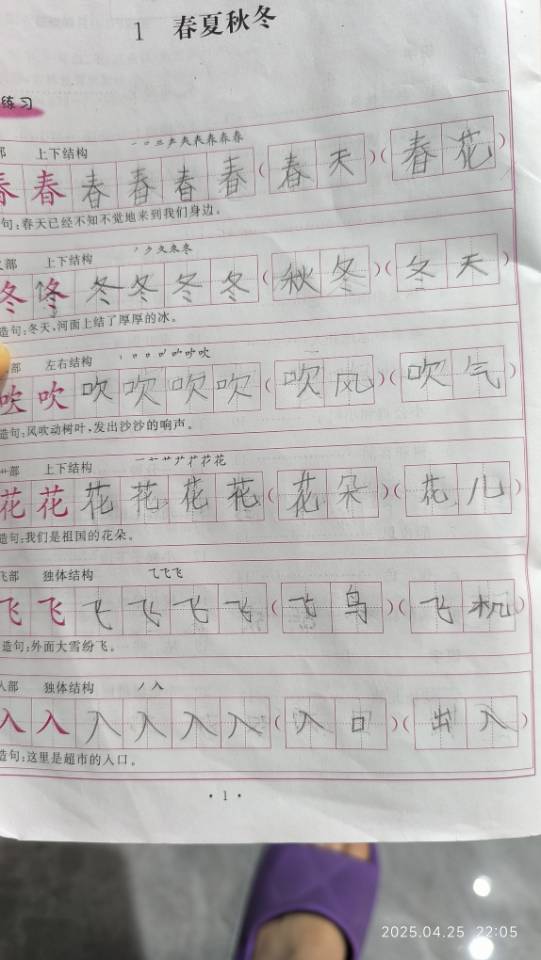 1 春夏秋冬
练习
部 上下结构 一 二 三 声 夫 夫 春 春 春
春 春 春 春 春 春 (春天)(春花)
句:春天已经不知不觉地来到我们身边。
部 上下结构 ノ ク 夂 冬 冬
冬 冬 冬 冬 冬 冬 (秋冬)(冬天)
造句:冬天,河面上结了厚厚的冰。
部 左右结构
吹 吹 吹 吹 吹 吹 (吹风)(吹气)
造句:风吹动树叶,发出沙沙的响声。
艹部 上下结构
花 花 花 花 花 花 (花朵)(花儿)
造句:我们是祖国的花朵。
飞部 独体结构 乁 飞 飞
飞 飞 飞 飞 飞 飞 (飞鸟)(飞机)
造句:外面大雪纷飞。
人部 独体结构 ノ 入
入 入 入 入 入 入 (入口)(出入)
造句:这里是超市的入口。
·1·
2025.04.25 22:05